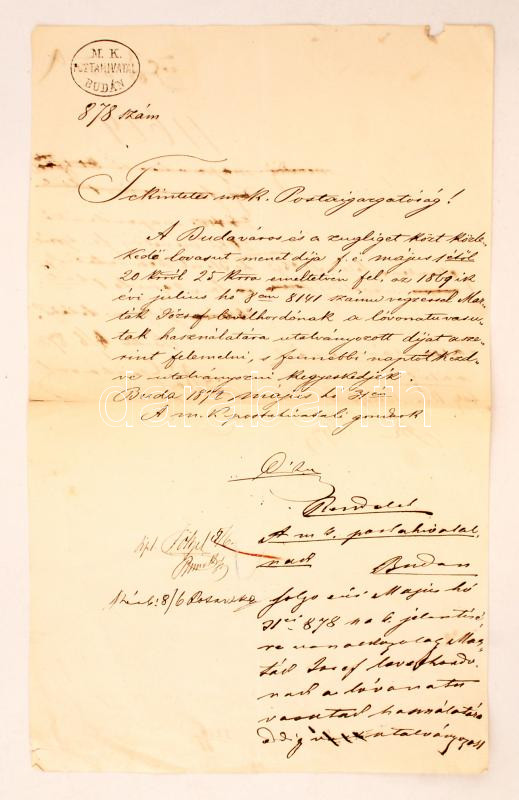 M. K.
POSTAHIVATAL
BUDÁN
878 szám
Tekintetes m. k. Postaigazgatóság!
A Budaváros és a zugliget közt közle-
kedő lovasut menetdija f. é. május 1től
20 król 25 krra emeltetvén fel, az 1869ik
évi julius hó 8141 számu végzéssel Mar-
ták József levélhordónak a lóvonatuvasu-
tak használatára utalványozott dijat a sze-
rint felemelni, s fennebbi naptól kezd-
ve utalványozni kegyeskedjék.
Buda 187 május hó 31én
A m. k. postahivatali gondnok
darabanth
Rendelet
A m. k. postahivatal-
nak
Budán
folyó évi Május hó
31én 878 sz. a. jelentésé-
re vonatkozólag Mar-
ták József levélhordó-
nak a lóvonatu
vasutak használatára
eddig utalványozott
8/6